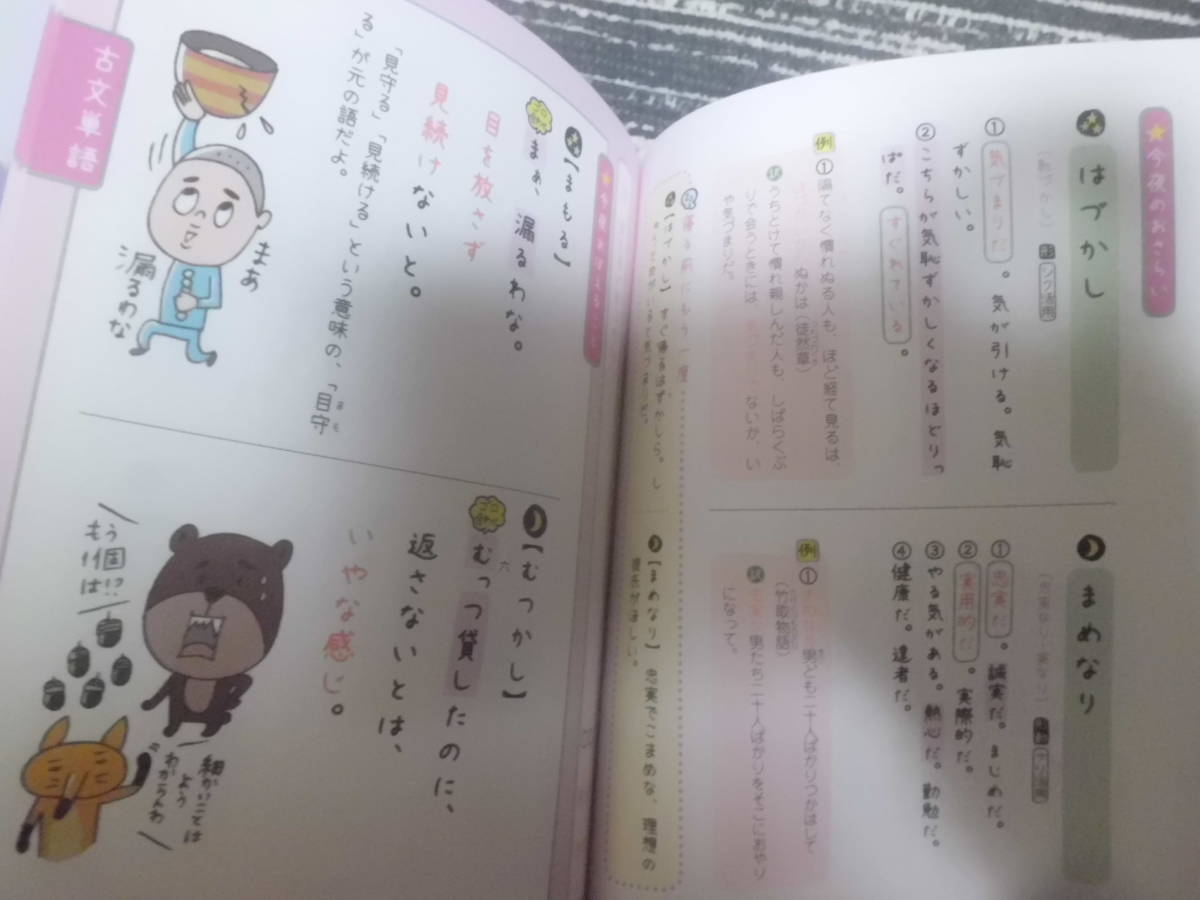 ★今夜のおさらい
はづかし
〔恥づかし〕
形 シク活用
①気づまりだ。気が引ける。気恥
ずかしい。
②こちらが気恥ずかしくなるほどりっ
ぱだ。すぐれている。
例 ①隔てなく慣れぬる人も、ほど経て見るは、
ぬかは（徒然草）
訳 うちとけて慣れ親しんだ人も、しばらくぶ
りで会うときには、
ないか、い
や気づまりだ。
まめなり
①忠実だ。誠実だ。まじめだ。
②実用的だ。実際的だ。
③やる気がある。熱心だ。勤勉だ。
④健康だ。達者だ。
例 ①
男ども二十人ばかりつかはして
（竹取物語）
訳
男たち二十人ばかりをそこにおやり
になって。
寝る前にもう一度
【はづかし】すぐ帰るはずかしら。し
【まめなり】忠実でこまめな、理想の
彼氏がほしい。
【まもる】
ゴロ合わせ
まぁ、漏るわな。
目を放さず
見続けないと。
「見守る」「見続ける」という意味の、「目守
る」が元の語だよ。
まあ
漏るわな
【むつかし】
ゴロ合わせ
むっつ貸したのに、
返さないとは、
いやな感じ。
もう
1個は!?
細かいことは
よう
わからんわ
古文単語